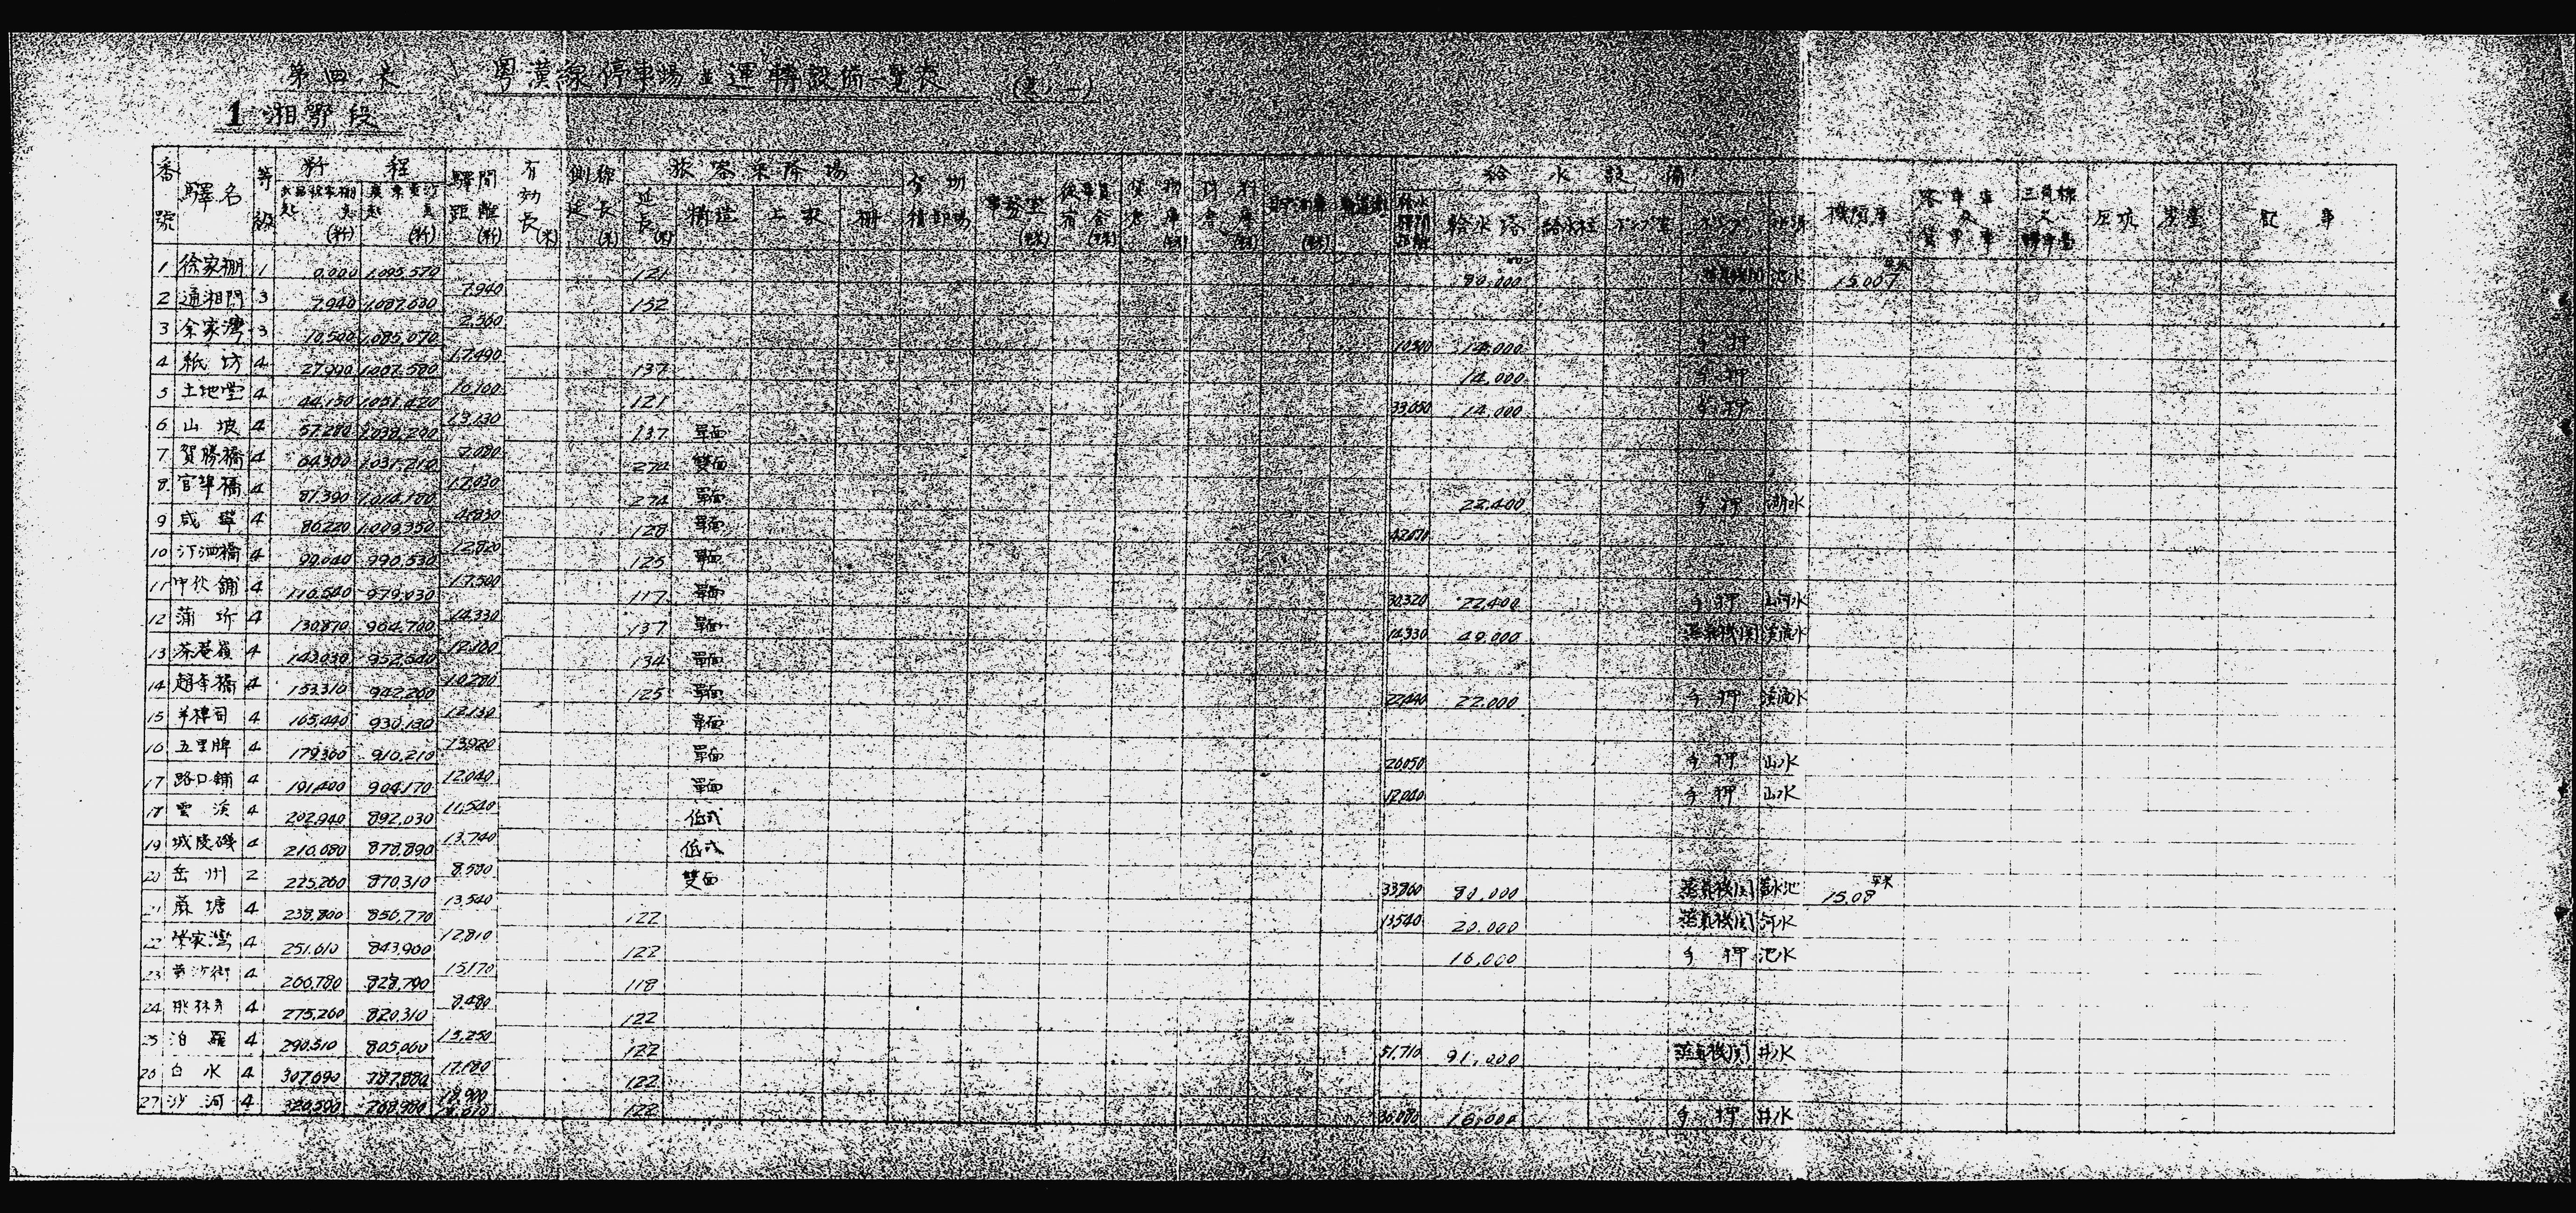 第四表 粤漢線停車場並運轉設備一覧表 (其ノ一)
1 湘鄂段
番號 驛名 等級 粁程 驛間距離(粁) 有効長(米) 側線延長(米) 旅客乘降場 貨物積卸場 事務室 從事員宿舍 貨物倉庫 材料倉庫 給水設備 機関庫 客車庫及貨車庫 三角線又轉車臺 灰坑 炭臺 記事
武昌徐家棚起點(粁) 廣東黄沙起點(粁) 延長(米) 構造 上家 柵 給水驛間距離 給水塔 給水柱 ポンプ室 ポンプ 水源
1 徐家棚 1 0.000 1,095,570 121 80,000 蒸氣機関 池水 15.00
7.940
2 通湘門 3 7.940 1,087,630 152
2,560
3 余家湾 3 10,500 1,085,070 10,500 14,000 手押
17,490
4 紙坊 4 27,990 1,067,580 137 14,000 手押
16,160
5 土地堂 4 44,150 1,051,420 121 33,650 14,000 手押
13,130
6 山坡 4 57,280 1,038,290 137 單面
7,080
7 賀勝橋 4 64,360 1,031,210 274 雙面
17,030
8 官埠橋 4 81,390 1,014,180 274 單面 22,400 手押 湖水
4,830
9 咸寧 4 86,220 1,009,350 128 單面 42,070
12,820
10 汀泗橋 4 99,040 996,530 125 單面
17,500
11 中伙鋪 4 116,540 979,030 117 單面 30,320 22,400 手押 山河水
14,330
12 蒲圻 4 130,870 964,700 137 單面 14,330 49,000 蒸氣機関 溪流水
12,160
13 茶菴嶺 4 143,030 952,540 134 單面
10,280
14 趙李橋 4 153,310 942,260 125 單面 22,440 22,000 手押 溪流水
12,130
15 羊樓司 4 165,440 930,130 單面
13,920
16 五里牌 4 179,360 916,210 單面 26,050 手押 山水
12,040
17 路口鋪 4 191,400 904,170 單面 12,040 手押 山水
11,540
18 雲溪 4 202,940 892,630 低式
13,740
19 城陵磯 4 216,680 878,890 低式
8,580
20 岳州 2 225,260 870,310 雙面 33,860 80,000 蒸氣機関 蓄水池 15.08 平米
13,540
21 蔴塘 4 238,800 856,770 122 13,540 20,000 蒸氣機関 河水
12,810
22 榮家湾 4 251,610 843,960 122 16,000 手押 池水
15,170
23 黄沙街 4 266,780 828,790 118
8,480
24 桃林寺 4 275,260 820,310 122
15,250
25 汨羅 4 290,510 805,060 122 51,710 91,000 蒸氣機関 井水
17,180
26 白水 4 307,690 787,880 122
18,900
27 沙河 4 326,590 768,980 122 36,080 16,000 手押 井水